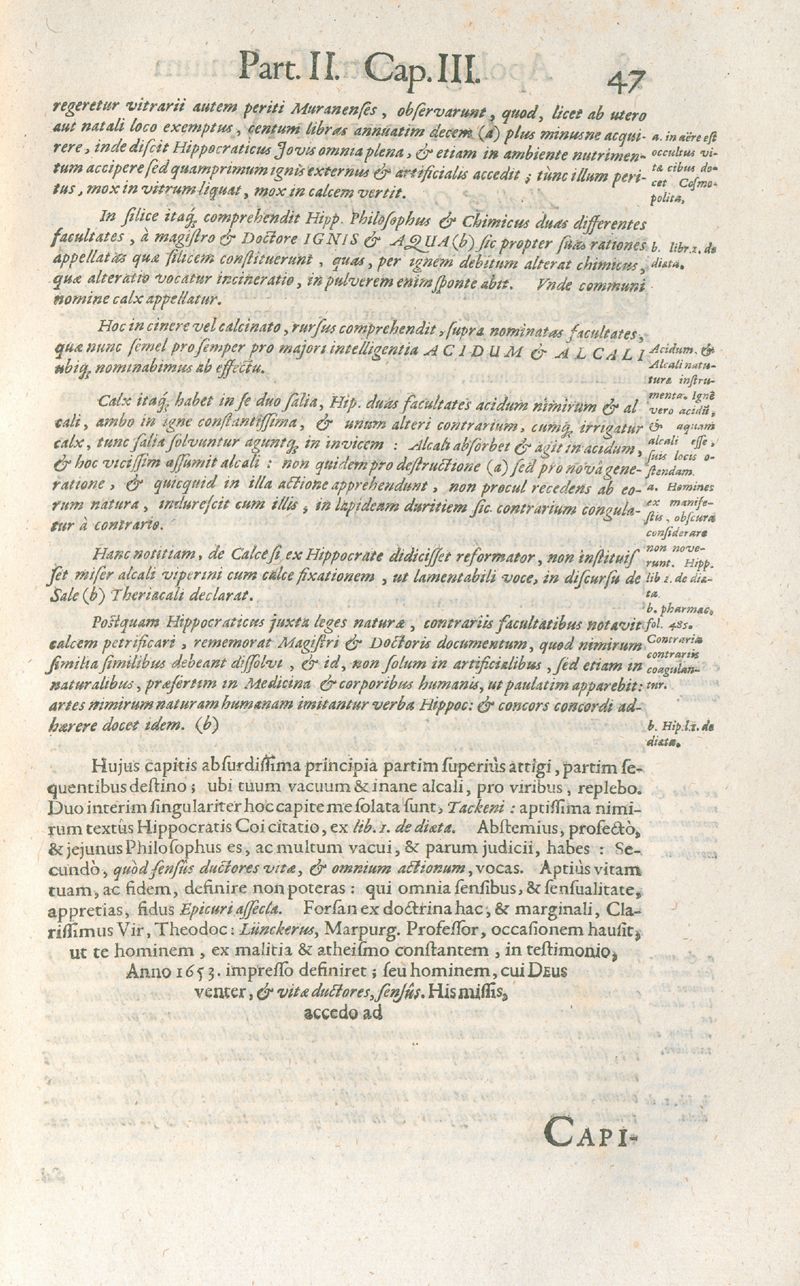 Part. II. Cap. III. 47
regeretur vitrarii autem periti Muranenſes, obſervarunt, quod, licet ab utero
aut natali loco exemptus, centum libras annuatim decem (a) plus minusne acqui-
rere, inde diſcit Hippocraticus Jovis omnia plena, & etiam in ambiente nutrimen-
tum accipere ſed quamprimum ignis externus & artificialis accedit; tunc illum peri-
tus, mox in vitrum liquat, mox in calcem vertit.
a. in aëre eſt
occultus vi-
tæ cibus do-
cet Coſmo-
polita,
In ſilice itaq; comprehendit Hipp. Philoſophus & Chimicus duas differentes
facultates, à magiſtro & Doctore IGNIS & AQUA (b) ſic propter ſuas rationes
appellatas quæ ſilicem conſtituerunt, quas, per ignem debitum alterat chimicus,
quæ alteratio vocatur incineratio, in pulverem enim ſponte abit. Vnde communi
nomine calx appellatur.
b. libr. 1. de
diæta.
Hoc in cinere vel calcinato, rurſus comprehendit, ſupra nominatas facultates,
quæ nunc ſemel pro ſemper pro majori intelligentia ACIDUM & ALCALI
ubiq; nominabimus ab effectu.
Acidum. &
Alcali natu-
turæ inſtru-
menta. Igne
vero acidū,
& aquam
alcali eſſe,
ſuis locis o-
ſtendam.
Calx itaq; habet in ſe duo ſalia, Hip. duas facultates acidum nimirum & al
cali, ambo in igne conſtantiſſima, & unum alteri contrarium, cumq; irrigatur
calx, tunc ſalia ſolvuntur aguntq; in invicem : Alcali abſorbet & agit in acidum,
& hoc viciſſim aſſumit alcali : non quidem pro deſtructione (a) ſed pro nova gene-
ratione, & quicquid in illa actione apprehendunt, non procul recedens ab eo-
rum natura, indureſcit cum illis, in lapideam duritiem ſic. contrarium congula-
tur à contrario.
a. Homines
ex manife-
ſtis, obſcura
conſiderare
non nove-
runt. Hipp.
lib 1. de diæ-
ta.
Hanc notitiam, de Calce ſi ex Hippocrate didiciſſet reformator, non inſtituiſ
ſet miſer alcali viperini cum calce fixationem, ut lamentabili voce, in diſcurſu de
Sale (b) Theriacali declarat.
b. pharmac.
fol. 485.
Poſtquam Hippocraticus juxta leges naturæ, contrariis facultatibus notavit
calcem petrificari, rememorat Magiſtri & Doctoris documentum, quod nimirum
ſimilia ſimilibus debeant diſſolvi, & id, non ſolum in artificialibus, ſed etiam in
naturalibus, præſertim in Medicina & corporibus humanis, ut paulatim apparebit:
artes nimirum naturam humanam imitantur verba Hippoc: & concors concordi ad-
hærere docet idem. (b)
Contraria
contrariis
coagulan-
tur.
b. Hip. l. 1. de
diæta.
Hujus capitis abſurdiſſima principia partim ſuperiùs attigi, partim ſe-
quentibus deſtino; ubi tuum vacuum & inane alcali, pro viribus, replebo.
Duo interim ſingulariter hoc capite me ſolata ſunt, Tackeni: aptiſſima nimi-
rum textûs Hippocratis Coi citatio, ex lib. 1. de diæta. Abſtemius, profectò,
& jejunus Philoſophus es, ac multum vacui, & parum judicii, habes : Se-
cundò, quòd ſenſûs ductores vitæ, & omnium actionum, vocas. Aptiùs vitam
tuam, ac fidem, definire non poteras : qui omnia ſenſibus, & ſenſualitate,
appretias, fidus Epicuri aſſecla. Forſan ex doctrina hac, & marginali, Cla-
riſſimus Vir, Theodoc: Lünckerus, Marpurg. Profeſſor, occaſionem hauſit,
ut te hominem, ex malitia & atheiſmo conſtantem, in teſtimonio,
Anno 1653. impreſſo definiret; ſeu hominem, cui DEUS
venter, & vitæ ductores, ſenſûs. His miſſis,
accedo ad
CAPI-